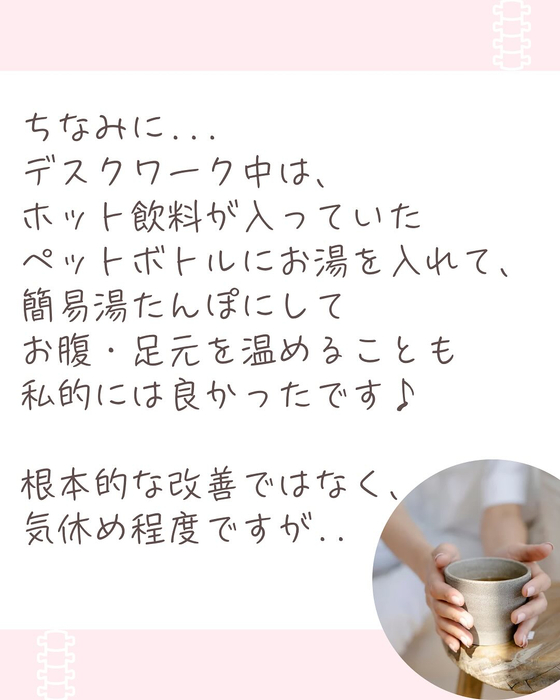 ちなみに...
デスクワーク中は、
ホット飲料が入っていた
ペットボトルにお湯を入れて、
簡易湯たんぽにして
お腹・足元を温めることも
私的には良かったです♪
根本的な改善ではなく、
気休め程度ですが..